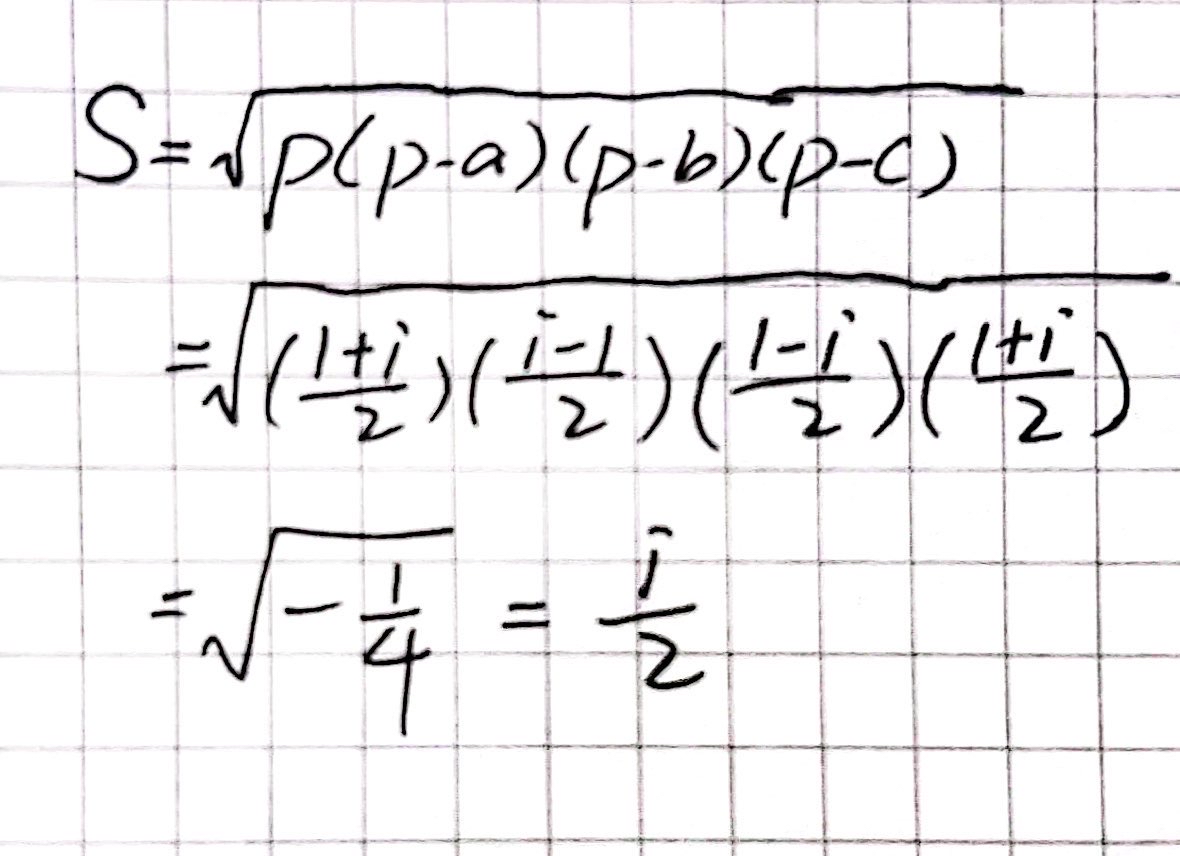 S=√p(p-a)(p-b)(p-c)
=√((1+i)/2)((i-1)/2)((1-i)/2)((1+i)/2)
=√-1/4 = i/2